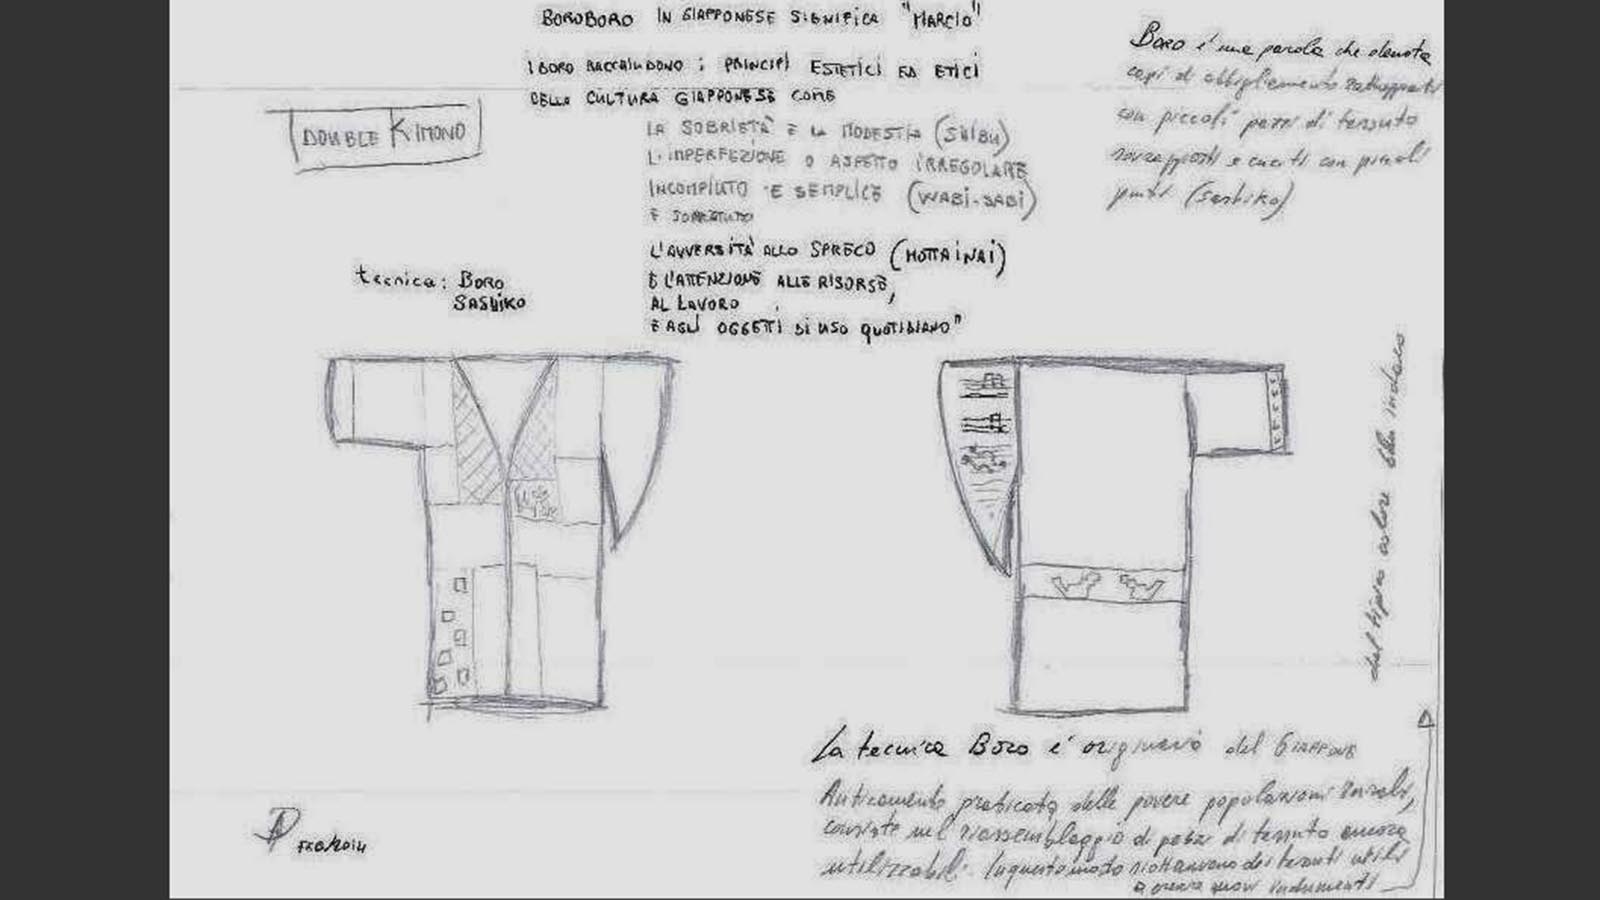 BOROBORO IN GIAPPONESE SIGNIFICA "MARCIO"
I BORO RACCHIUDONO I PRINCIPI ESTETICI ED ETICI
DELLA CULTURA GIAPPONESE COME
LA SOBRIETÀ E LA MODESTIA (SHIBU)
L'IMPERFEZIONE O ASPETTO IRREGOLARE
INCOMPIUTO E SEMPLICE (WABI-SABI)
E SOPRATUTTO
L'AVVERSITÀ ALLO SPRECO (MOTTAINAI)
E L'ATTENZIONE ALLE RISORSE,
AL LAVORO
E AGLI OGGETTI DI USO QUOTIDIANO"
Boro è una parola che denota
capi di abbigliamento rattoppati
con piccoli pezzi di tessuto
sovrapposti e cuciti con piccoli
punti (sashiko)
DOUBLE KIMONO
tecnica: BORO
SASHIKO
La tecnica Boro è originaria del GIAPPONE
Anticamente praticata dalle povere popolazioni rurali,
consiste nel riassemblaggio di pezzi di tessuto ancora
utilizzabili. In questo modo si ottenevano dei tessuti utili
a creare nuovi indumenti
dal tipico colore blu indaco
FEB/2014